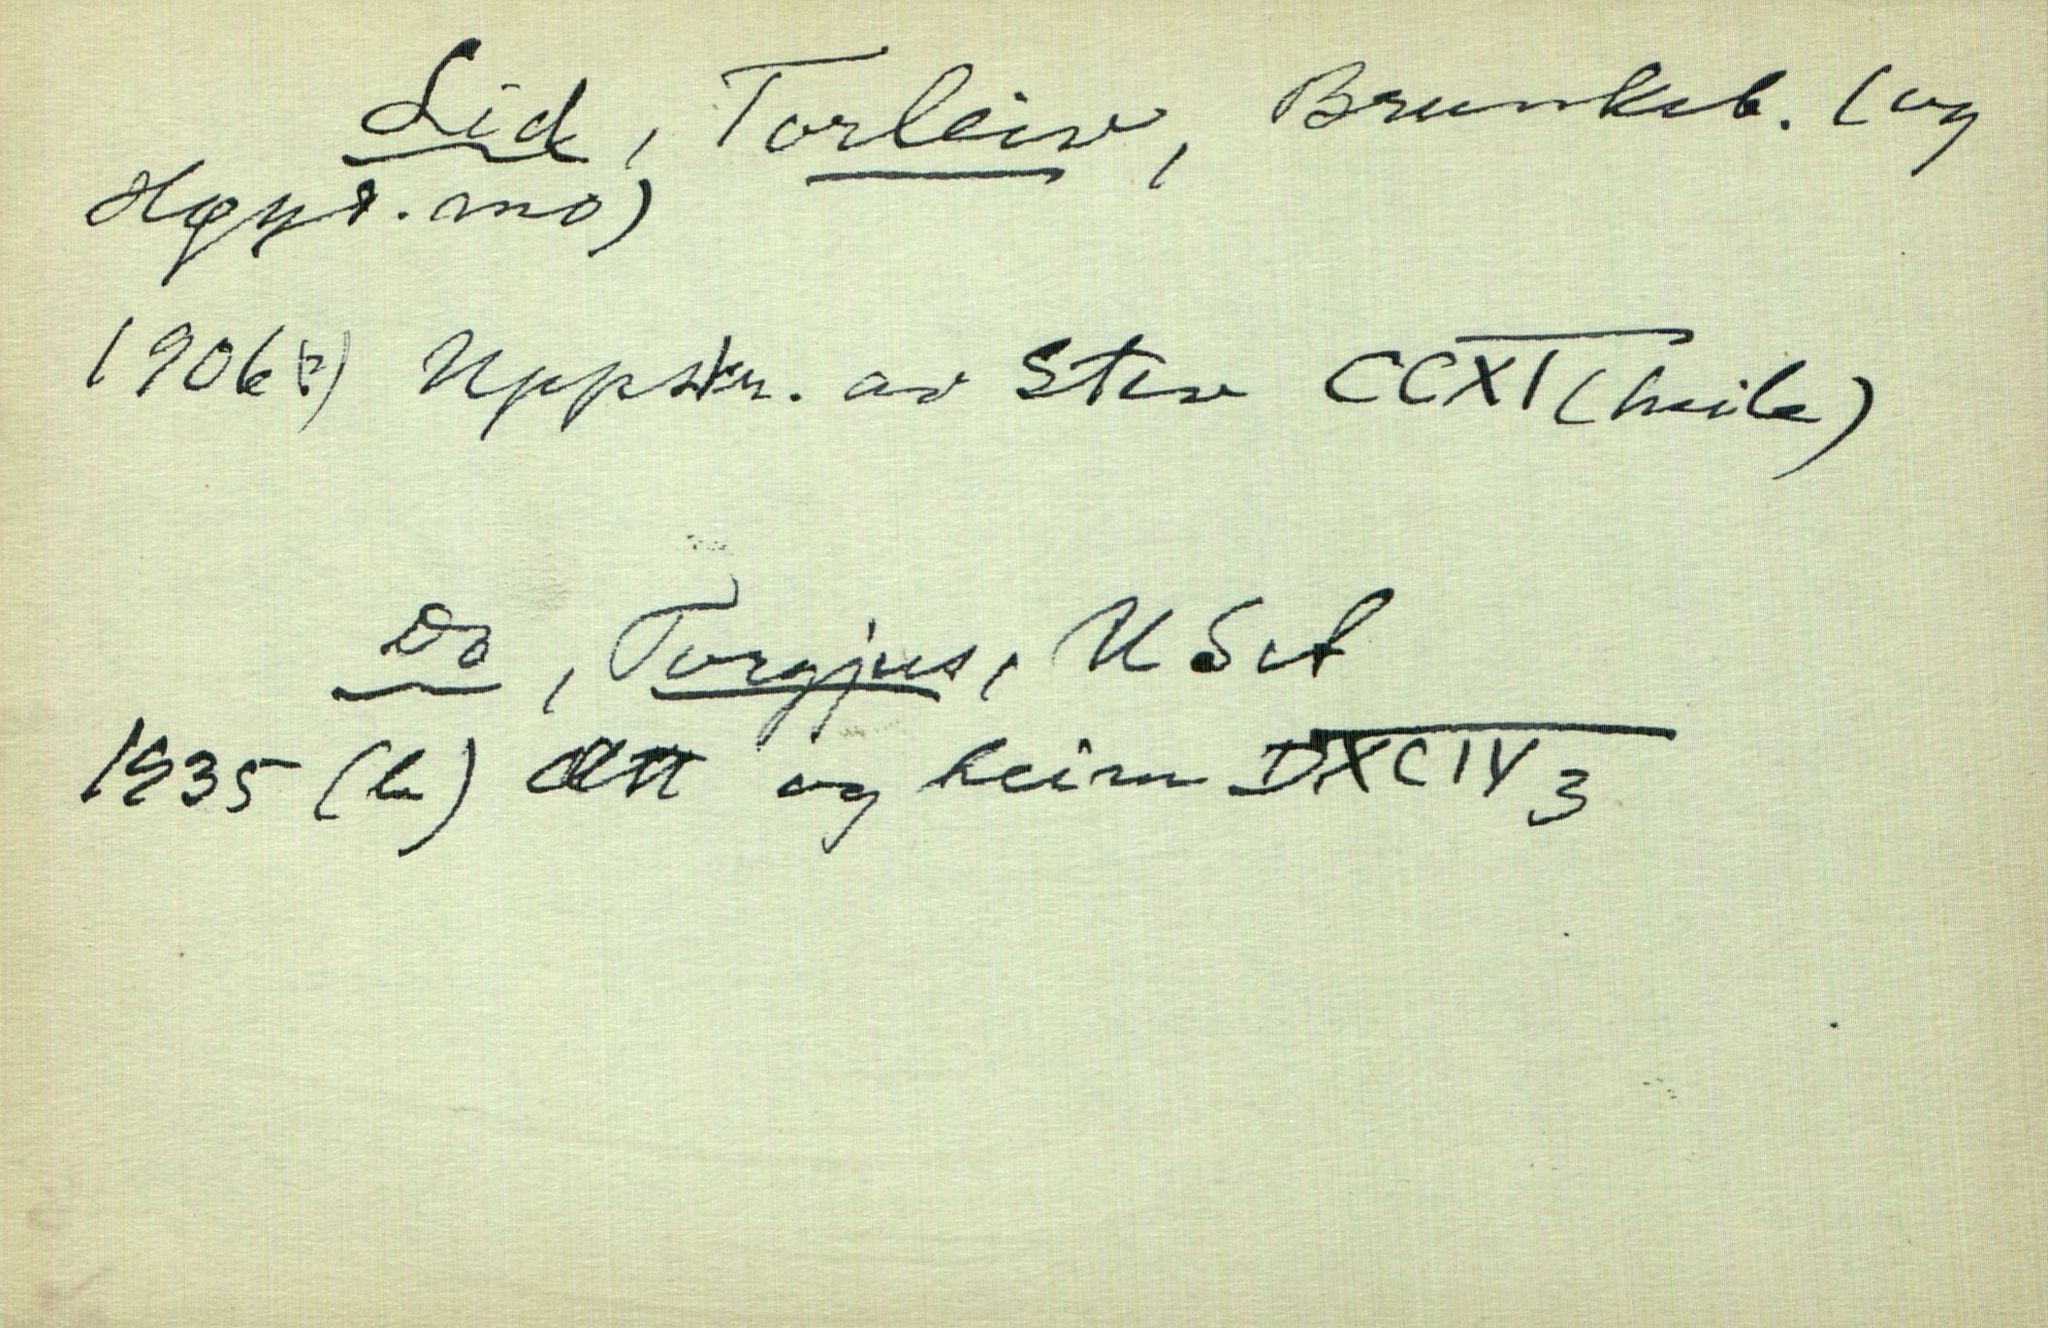 Lid, Torleiv, Brunkeb. (og
Høyd.mo)
1906(?) Uppskr. av Stev CCXI (heile)
Do, Torgjus, USA
1935 (br) Ætt og heim DXCIV 3